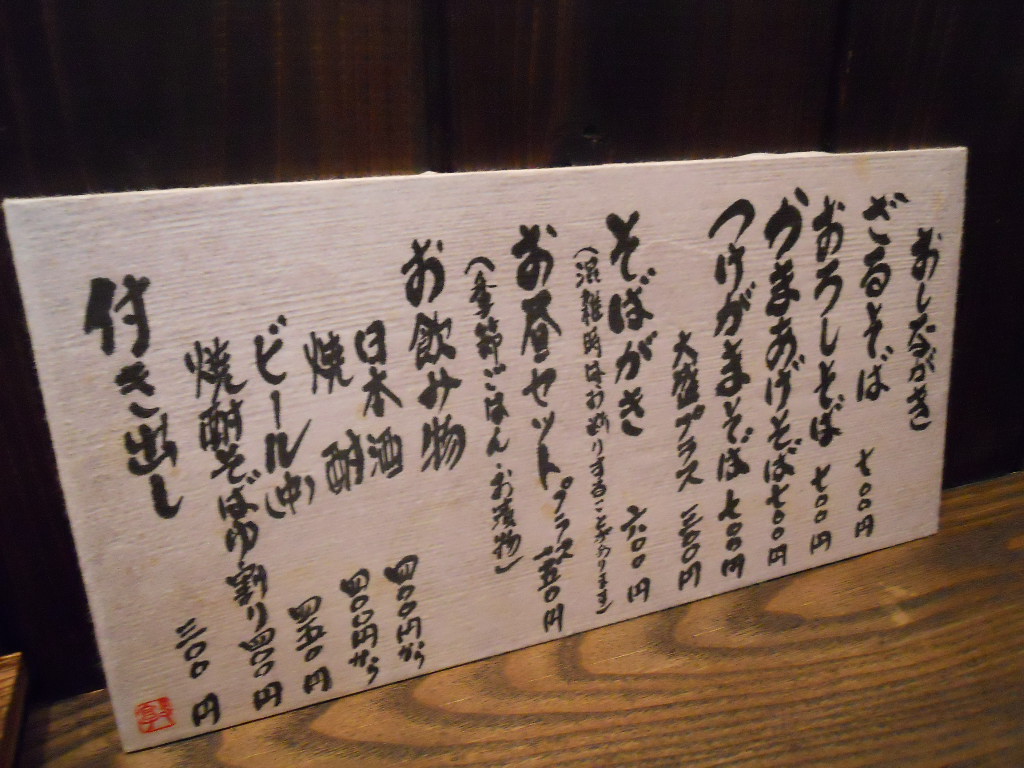 おしながき
ざるそば 七〇〇円
おろしそば 七〇〇円
かまあげそば 七〇〇円
つけがまそば 七〇〇円
大盛プラス 三〇〇円
そばがき 六〇〇円
(混雑時はお断りすることがあります)
お昼セット プラス 一五〇円
(季節ごはん・お漬物)
お飲み物
日本酒 四〇〇円から
焼酎 四〇〇円から
ビール(中) 四五〇円
焼酎そばゆ割り 四〇〇円
付き出し 三〇〇円